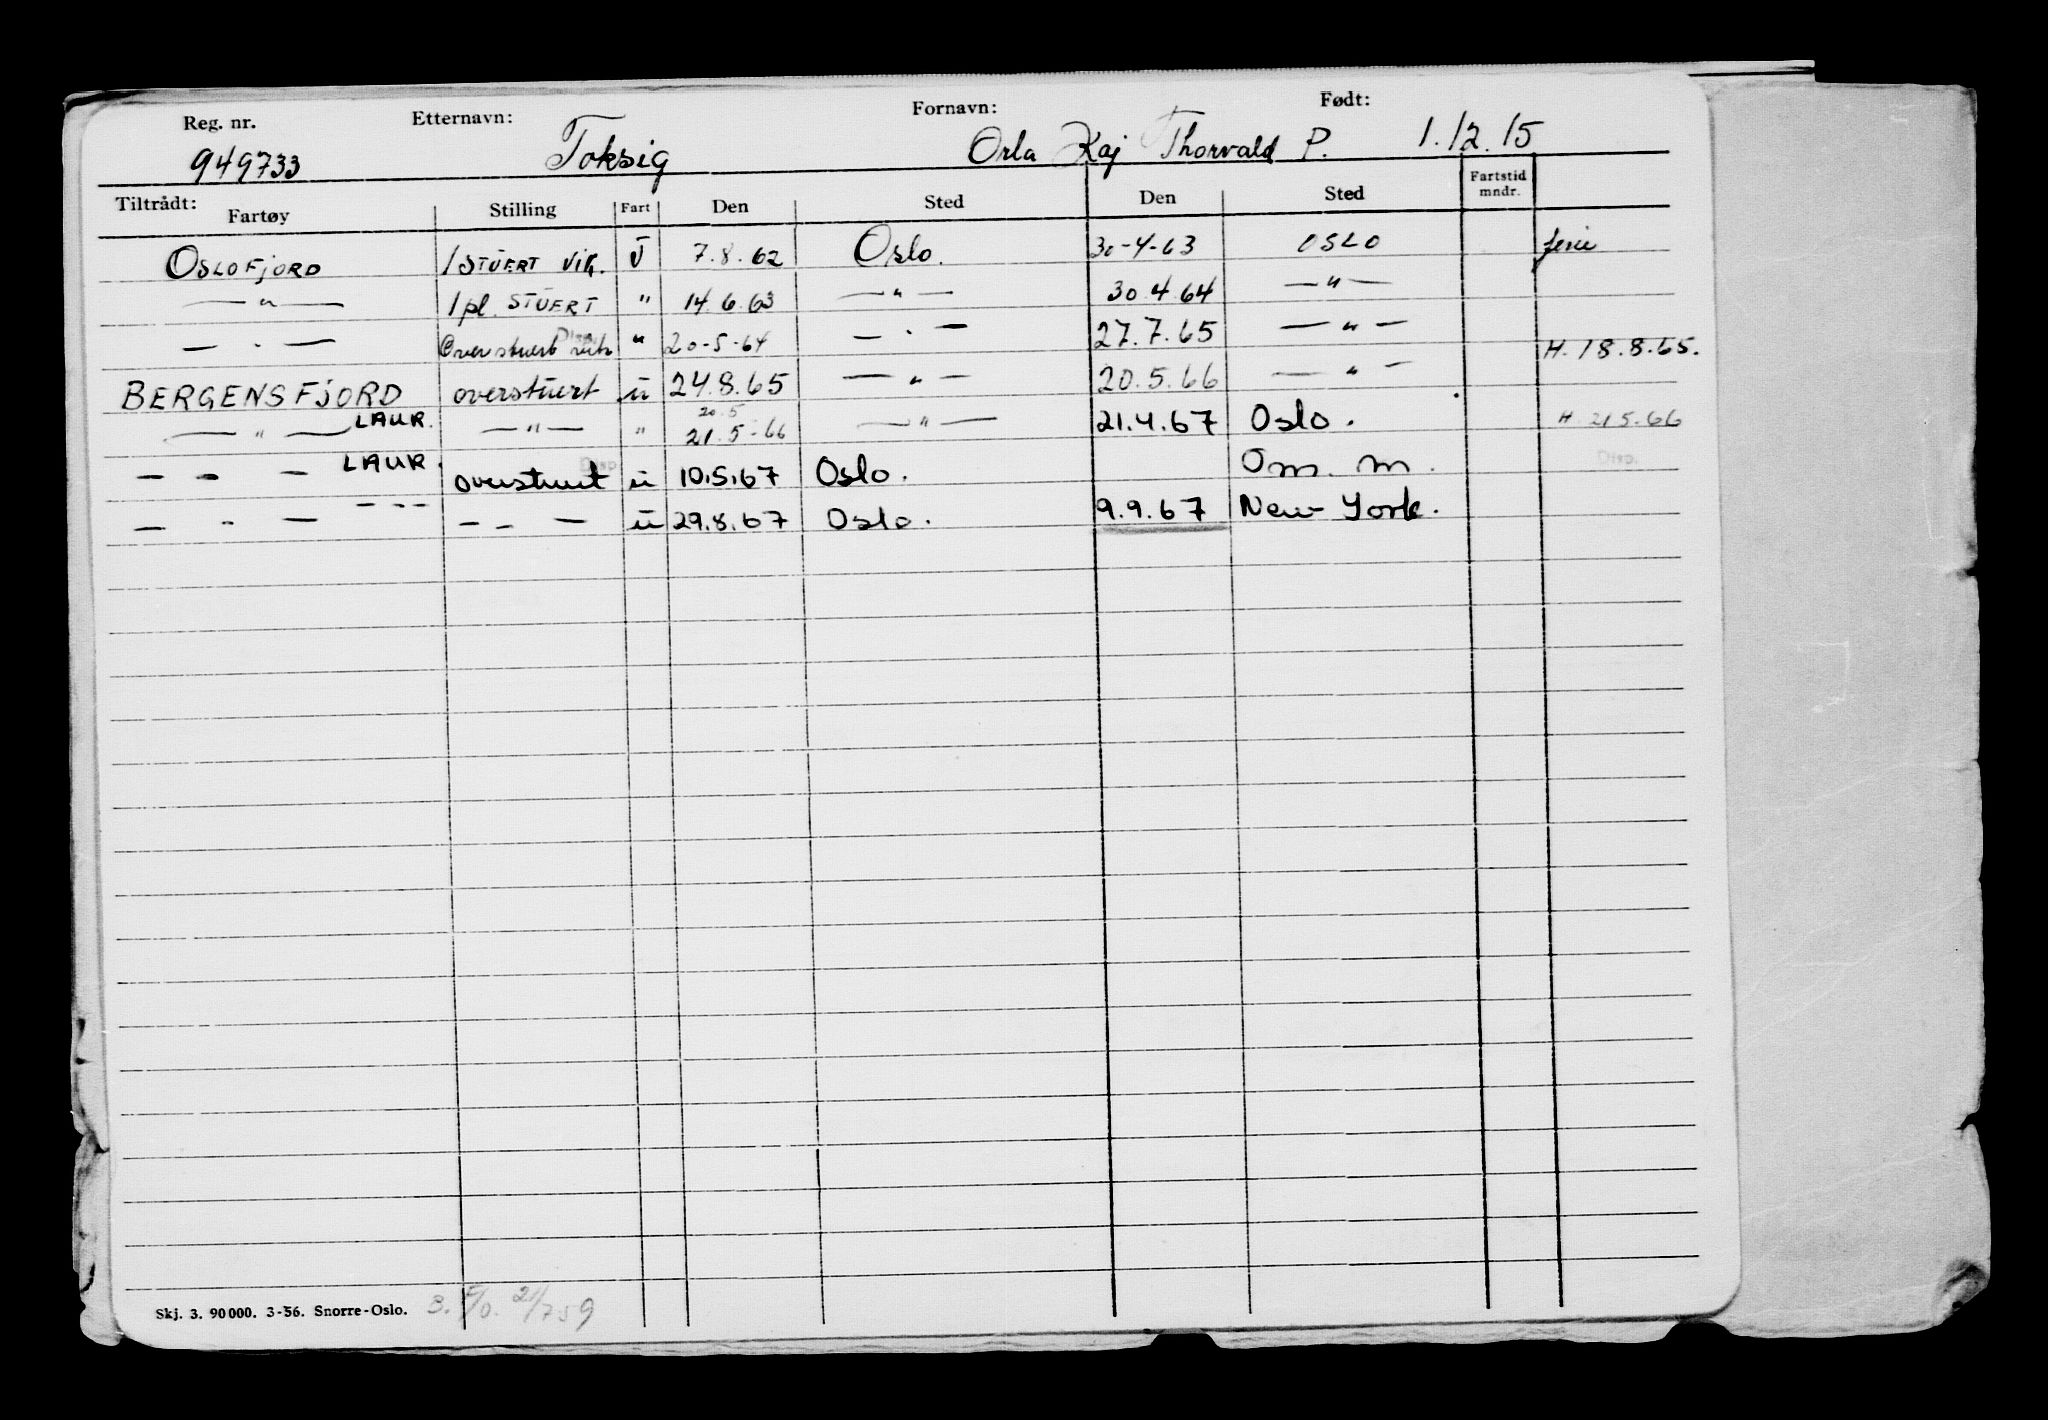 Reg. nr. Etternavn: Fornavn: Født:
949733 Toksig Orla Kaj Thorvald P. 1.12.15
Tiltrådt: Fartøy Stilling Fart Den Sted Den Sted Fartstid mndr.
OSLOFJORD 1 STUERT VIK. U 7.8.62 Oslo. 30-4-63 OSLO ferie
— " — 1 pl. STUERT " 14.6.63 — " — 30.4.64 — " —
— " — Overstuert vik Disp. " 20-5-64 — " — 27.7.65 — " — H. 18.8.65.
BERGENSFJORD overstuert u 24.8.65 — " — 20.5.66 — " —
— " — LAUR. — " — " 20.5 21.5-66 — " — 21.4.67 Oslo. H 21.5.66
— " — LAUR. overstuert Disp u 10.5.67 Oslo. Om. m. Disp.
— " — - - - — - — u 29.8.67 Oslo. 9.9.67 New York.
Skj. 3. 90 000. 3-56. Snorre-Oslo.